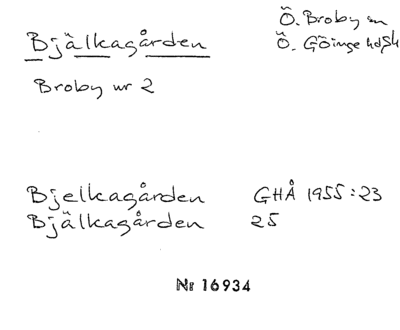 Bjälkagården
Ö. Broby sn
Ö. Göinge hd Sk
Broby nr 2
Bjelkagården GHÅ 1955:23
Bjälkagården 25
Nr 16934